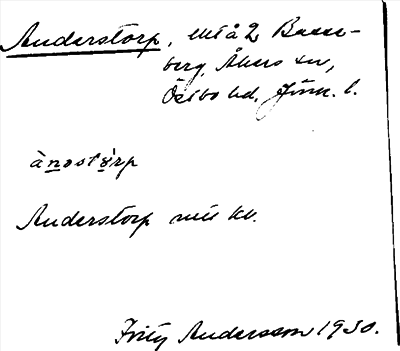 Anderstorp, uti å 2 Basse-
berg, Åkers sn,
Östbo hd, Jönk. l.
ànəstórp
Anderstorp mis kv.
Fritz Andersson 1930.